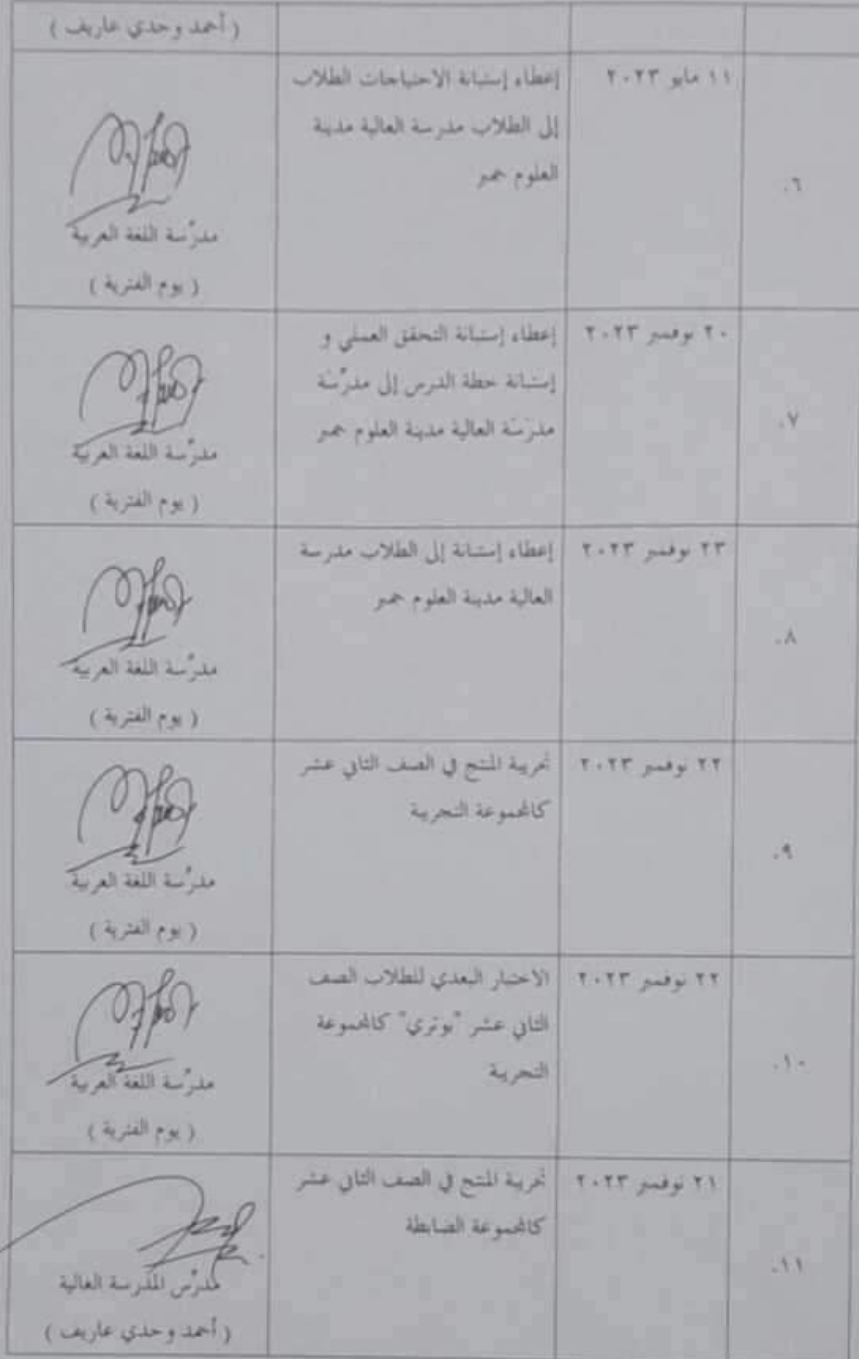 ( أحمد وحدي عاريف )
٦.
١١ مايو ٢٠٢٣
إعطاء إستبانة الاحتياجات الطلاب
إلى الطلاب مدرسة العالية مدينة
العلوم جمبر
مدرّسة اللغة العربية
( يوم الفترية )
٧.
٢٠ نوفمبر ٢٠٢٣
إعطاء إستبانة التحقق العملي و
إستبانة خطة الدرس إلى مدرّسة
مدرسة العالية مدينة العلوم جمبر
مدرّسة اللغة العربية
( يوم الفترية )
٨.
٢٣ نوفمبر ٢٠٢٣
إعطاء إستبانة إلى الطلاب مدرسة
العالية مدينة العلوم جمبر
مدرّسة اللغة العربية
( يوم الفترية )
٩.
٢٢ نوفمبر ٢٠٢٣
تجريبة المنتج في الصف الثاني عشر
كالمجموعة التجريبة
مدرّسة اللغة العربية
( يوم الفترية )
١٠.
٢٢ نوفمبر ٢٠٢٣
الاختبار البعدي للطلاب الصف
الثاني عشر "بوتري" كالمجموعة
التجريبة
مدرّسة اللغة العربية
( يوم الفترية )
١١.
٢١ نوفمبر ٢٠٢٣
تجريبة المنتج في الصف الثاني عشر
كالمجموعة الضابطة
مدرّس المدرسة العالية
( أحمد وحدي عاريف )